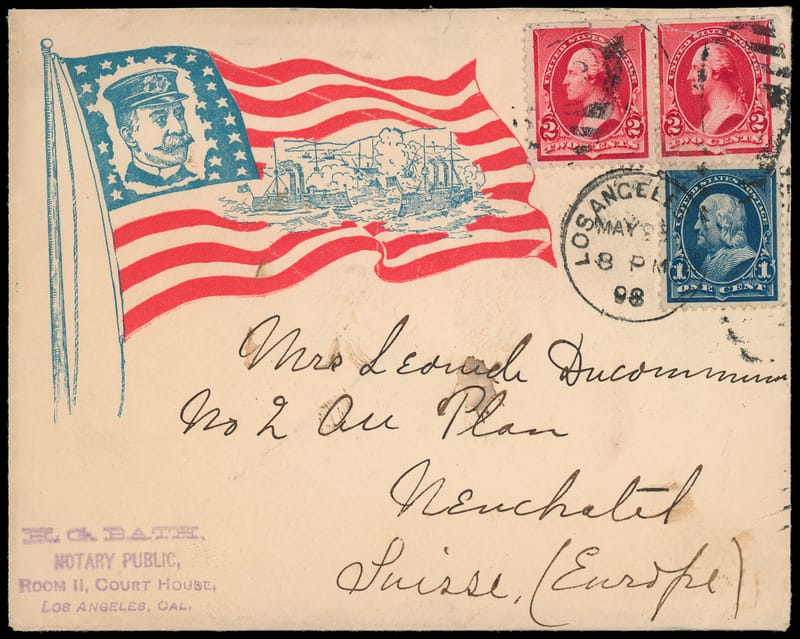 UNITED STATES POSTAGE
2 2
TWO CENTS
UNITED STATES POSTAGE
2 2
TWO CENTS
UNITED STATES POSTAGE
1 1
ONE CENT
LOS ANGELES
MAY
8 PM
98
Mrs Leonide Ducommun
No 2 Au Plan
Neuchatel
Suisse, (Europe)
H. G. BATH,
NOTARY PUBLIC,
ROOM 11, COURT HOUSE,
LOS ANGELES, CAL.